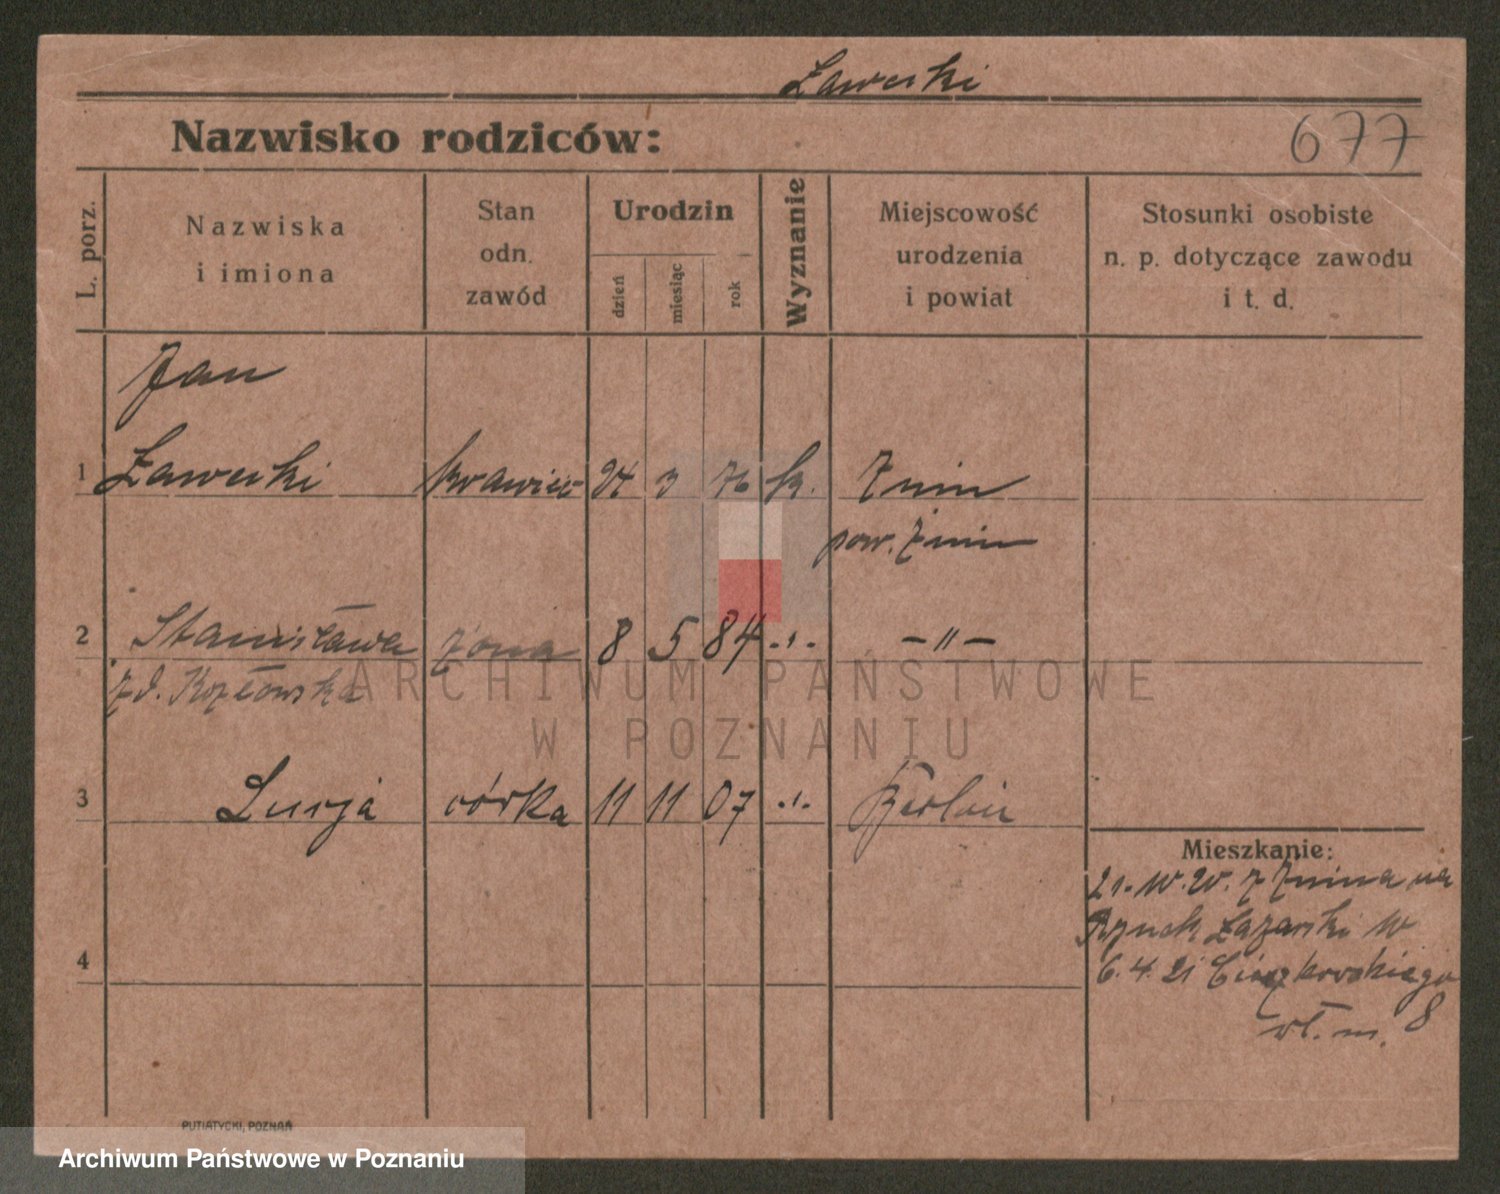 Ławecki
Nazwisko rodziców:
677
L. porz.
Nazwiska
i imiona
Stan
odn.
zawód
Urodzin
dzień
miesiąc
rok
Wyznanie
Miejscowość
urodzenia
i powiat
Stosunki osobiste
n. p. dotyczące zawodu
i t. d.
Jan
1 Ławecki krawiec 24 3 76 k. Żnin
pow. Żnin
2 Stanisława żona 8 5 84 -"- -"-
zd. Kozłowska
3 Lucja córka 11 11 07 -"- Berlin
4
Mieszkanie:
21. z Żnina na
Rynek Łazarski 10
6. 4. 21 Cieszkowskiego 8
wł. m.
PUTIATYCKI, POZNAŃ
ARCHIWUM PAŃSTWOWE
W POZNANIU
Archiwum Państwowe w Poznaniu